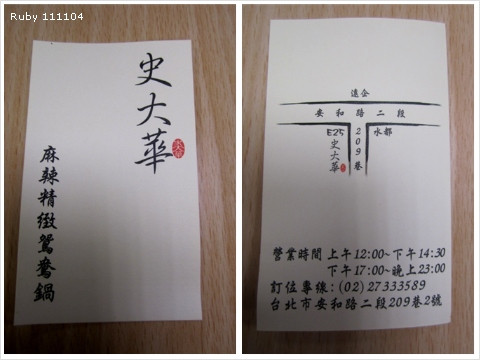 Ruby 111104
史大華
麻辣精緻鴛鴦鍋
遠企
安和路二段
E25
史大華
209巷
水都
營業時間 上午12:00~下午14:30
下午17:00~晚上23:00
訂位專線:(02)27333589
台北市安和路二段209巷2號